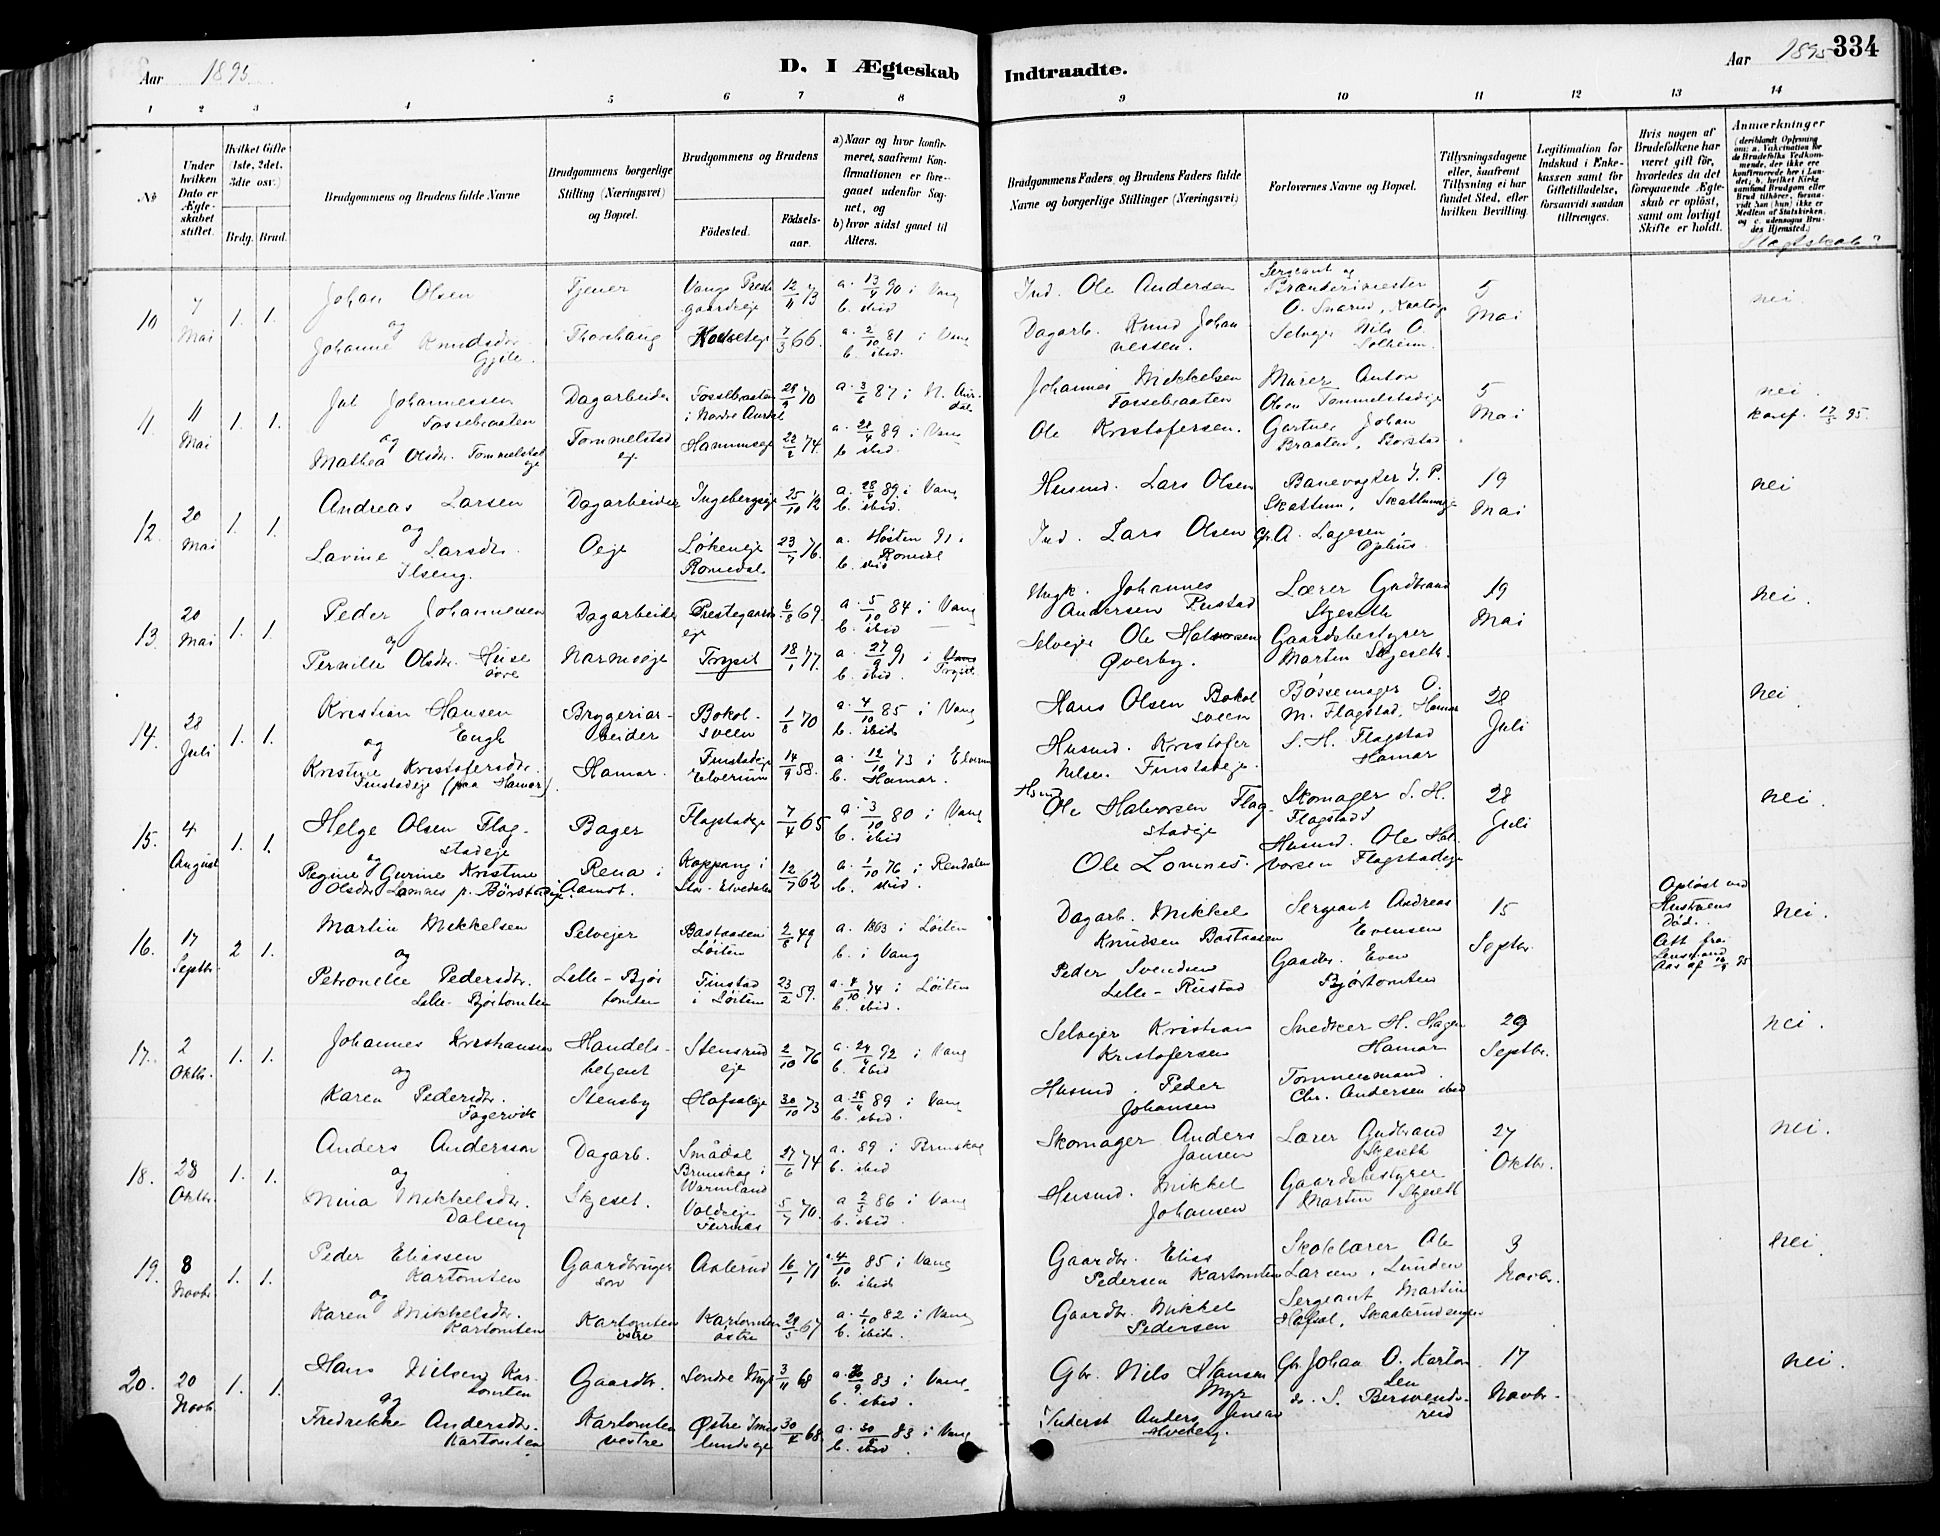 Aar 1895. D. I Ægteskab Indtraadte. Aar 1895 334
1 2 3 4 5 6 7 8 9 10 11 12 13 14
No
Under hvilken Dato er Ægteskabet stiftet.
Hvilket Gifte (1ste, 2det, 3dte osv.)
Brdg. Brud.
Brudgommens og Brudens fulde Navne
Brudgommens borgerlige Stilling (Næringsvei) og Bopæl.
Brudgommens og Brudens
Födested. Födsels-aar.
a) Naar og hvor konfirmeret, saafremt Konfirmationen er foregaaet udenfor Sognet, og
b) hvor sidst gaaet til Alters.
Brudgommens Faders og Brudens Faders fulde Navne og borgerlige Stillinger (Næringsvei)
Forlovernes Navne og Bopæl.
Tillysningsdagene eller, saafremt Tillysning ei har fundet Sted, efter hvilken Bevilling.
Legitimation for Indskud i Enkekassen samt for Giftetilladelse, forsaavidt saadan tiltrænges.
Hvis nogen af Brudefolkene har været gift før, hvorledes da det foregaaende Ægteskab er opløst, samt om lovligt Skifte er holdt.
Anmærkninger
Slægtskab?
10 7 Mai 1. 1. Johan Olsen Tjener Vangs Prestgaardseje 12/11 73 a. 13/4 90 i Vang b. ibid Ind. Ole Andersen Sergeant og Brænderimester O. Snarud, 5 Mai nei.
og Johanne Knudsdr. Gjete. Thorshaug 7/3 66. a. 2/10 81 i Vang b. ibid. Dagarb. Knud Johannessen. Selvejer Nils O. Solheim.
11. 11 Mai 1. 1. Jul Johannessen Fossebraaten Dagarbeider Fossebraaten i Nordre Aurdal 29/9 70 a. 3/6 87 i N. Aurdal Johannes Mikkelsen Fossebraaten Murer Anton Olsen Tommelstadeje 5 Mai nei. konf. 17/5 95
og Mathea Olsdr. Tommelstadeje Tommelstadej Hammseje 22/2 74. a. 28/4 89 i Vang b. ibid. Ole Kristofersen. Gartner Johan Braaten, Børstad
12. 20 Mai 1. 1. Andreas Larsen Dagarbeider Ingebergseje 25/10 12 a. 28/4 89. i Vang b. ibid. Husmd. Lars Olsen Banevogter J. P. Skattum, Skattumeje 19 Mai nei
og Lavine Larsdr. Ilseng. Oeje Løkeneje Romedal 23/7 76. a. Høsten 91. i Romedal b. ibid Ind. Lars Olsen A. Lagesen, Ophus.
13. 20 Mai 1. 1. Peder Johannessen Dagarbeider Prestegaardseje 6/8 69. a. 5/10 84 i Vang b. ibid Hugk. Johannes Andersen Rustad Lærer Gudbrand Skjeseth 19 Mai nei.
og Pernille Olsdr. Huse øvre Narmoeje Trysil 18/1 77. a. 27/9 91 i Vang Trysil. b. ibid. Selvejer Ole Halvorsen Øverby. Gaardsbestyrer Martin Skjeseth.
14. 28 Juli 1. 1. Kristian Hansen Engh Bryggeriarbeider Bokolsveen 1/8 70 a. 4/10 85 i Vang b. ibid Hans Olsen Bokolsveen Bøssemager O. M. Flagstad, Hamar 28 Juli nei.
og Kristine Kristofersdr. Finstadeje (paa Hamar). Hamar. Finstadeje Elverum 14/9 58. a. 12/10 73 i Elverum b. Hamar. Husmd. Kristofer Nilsen Finstadeje. S. H. Flagstad Hamar
15. 4 August 1. 1. Helge Olsen Flagstadeje Bager Flagstadeje 7/4 65 a. 3/10 80 i Vang b. ibid. Husmd. Ole Halvorsen Flagstadeje Skomager S. H. Flagstad 28 Juli nei.
og Regine Gurine Kristine Olsdr. Lomnes p. Børstadeje. Rena i Aamot. Koppang i Stor-Elvedalen 12/7 62 a. 1/10 76 i Rendalen b. ibid. Ole Lomnes. Husmd. Ole Halvorsen Flagstadeje
16. 17 Septbr. 2 1. Martin Mikkelsen Selvejer Bastaasen Løiten 2/5 49 a. 1863 i Løiten b. i Vang Dagarb. Mikkel Knudsen Bastaasen Sergeant Andreas Evensen 15 Septbr. Opløst ved Hustruens Død. Att. fra Lensmand Aas af 14/9 95 nei.
og Petronelle Pedersdr. Lille-Bjørtomten Lille-Bjørtomten Finstad i Løiten 23/2 59. a. 4/10 74 i Løiten b. ibid. Peder Svendsen Lille-Rustad Gaardbr. Even Bjørtomten
17. 2 Oktbr. 1. 1. Johannes Kristiansen Handelsbetjent Stensrudeje 2/10 76 a. 24/4 92 i Vang b. ibid Selvejer Kristian Kristofersen Snedker H. Hagen Hamar 29 Septbr. nei.
og Karen Pedersdr. Fagervik Stensby Hofsaleje 30/10 73 a. 28/4 89 i Vang b. ibid. Husmd. Peder Johansen Tømmermand Chr. Andersen ibid
18. 28 Oktbr. 1. 1. Anders Andersson Dagarb. Smådal Brunskog i Warmland 27/6 74 a. 89 i Brunskog b. ibid Skomager Anders Jansen Lærer Gudbrand Skjeseth 27 Oktbr. nei.
og Nina Mikkelsdr. Dalseng Skjeset. Voldeje Furnes 5/7 70. a. 2/5 86 i Vang b. ibid. Husmd. Mikkel Johansen Gaardsbestyrer Martin Skjeseth
19. 8 Novbr. 1. 1. Peder Eliassen Kartomten Gaardbrugersøn Aalerud 16/1 71 a. 4/10 85 i Vang b. ibid. Gaardbr. Elias Pedersen Kartomten Skolelærer Ole Larsen, Lunden 3 Novbr. nei.
og Karen Mikkelsdr. Kartomten Kartomten østre Kartomten østre 29/5 67 a. 1/10 82 i Vang b. ibid. Gaardbr. Mikkel Pedersen Sergeant Martin Hofsal, Skaaterudengen
20. 20 Novb. 1. 1. Hans Nilsen Kartomten Gaardbr. Søndre Myr 3/11 68 a. 30/9 83 i Vang. b. ibid. Gbr. Nils Hansen Myr Gbr Johan O. Kartomten 17 Novbr. nei.
og Fredrikke Andersdr. Kartomten Kartomten vestre Østre Imeslundseje 30/4 68. a. 30/9 83 i Vang b. ibid. Inderst Anders Jensen Alveberg. do. S. Bersvendsrud